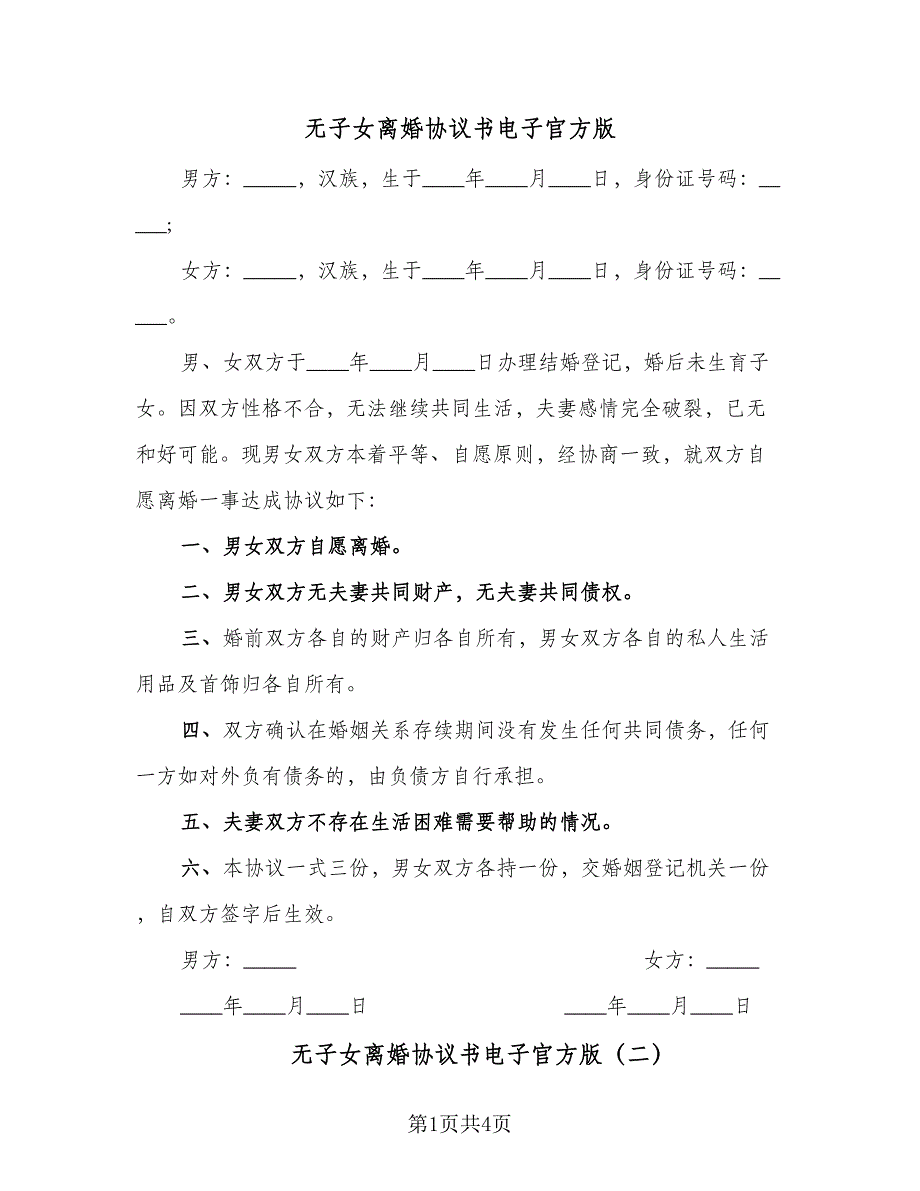 无子女离婚协议书电子官方版
男方：_____，汉族，生于____年____月____日，身份证号码：__
___;
女方：_____，汉族，生于____年____月____日，身份证号码：__
___。
男、女双方于____年____月____日办理结婚登记，婚后未生育子
女。因双方性格不合，无法继续共同生活，夫妻感情完全破裂，已无
和好可能。现男女双方本着平等、自愿原则，经协商一致，就双方自
愿离婚一事达成协议如下：
一、男女双方自愿离婚。
二、男女双方无夫妻共同财产，无夫妻共同债权。
三、婚前双方各自的财产归各自所有，男女双方各自的私人生活
用品及首饰归各自所有。
四、双方确认在婚姻关系存续期间没有发生任何共同债务，任何
一方如对外负有债务的，由负债方自行承担。
五、夫妻双方不存在生活困难需要帮助的情况。
六、本协议一式三份，男女双方各持一份，交婚姻登记机关一份
，自双方签字后生效。
男方：_____ 女方：_____
____年____月____日 ____年____月____日
无子女离婚协议书电子官方版（二）
第1页共4页